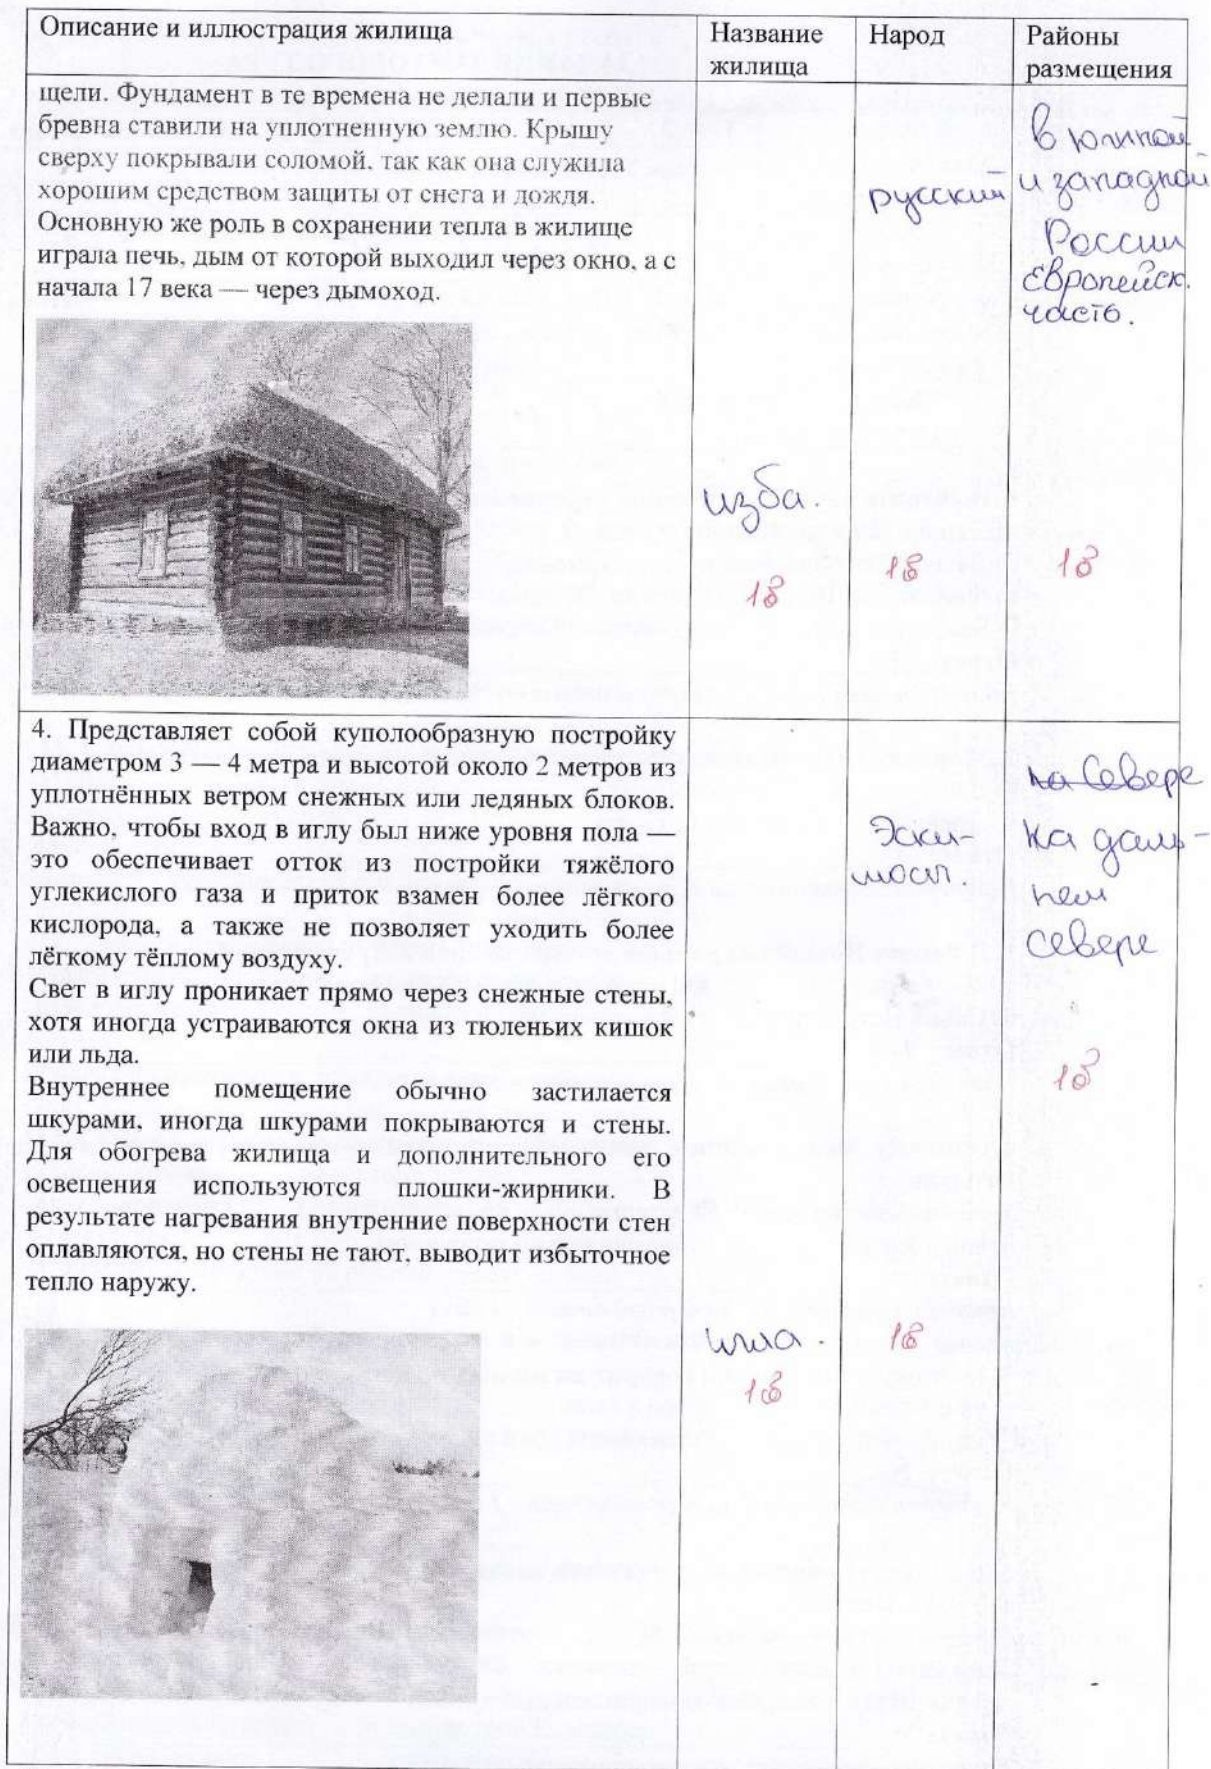 Описание и иллюстрация жилища
Название
жилища
Народ
Районы
размещения
щели. Фундамент в те времена не делали и первые
бревна ставили на уплотненную землю. Крышу
сверху покрывали соломой, так как она служила
хорошим средством защиты от снега и дождя.
Основную же роль в сохранении тепла в жилище
играла печь, дым от которой выходил через окно, а с
начала 17 века — через дымоход.
изба.
1б
русский
1б
в южной
и западной
России
европейск.
часть.
1б
4. Представляет собой куполообразную постройку
диаметром 3 — 4 метра и высотой около 2 метров из
уплотнённых ветром снежных или ледяных блоков.
Важно, чтобы вход в иглу был ниже уровня пола —
это обеспечивает отток из постройки тяжёлого
углекислого газа и приток взамен более лёгкого
кислорода, а также не позволяет уходить более
лёгкому тёплому воздуху.
Свет в иглу проникает прямо через снежные стены,
хотя иногда устраиваются окна из тюленьих кишок
или льда.
Внутреннее помещение обычно застилается
шкурами, иногда шкурами покрываются и стены.
Для обогрева жилища и дополнительного его
освещения используются плошки-жирники. В
результате нагревания внутренние поверхности стен
оплавляются, но стены не тают, выводит избыточное
тепло наружу.
1б
Эски-
мосы.
1б
на Севере
на даль-
нем
севере
1б